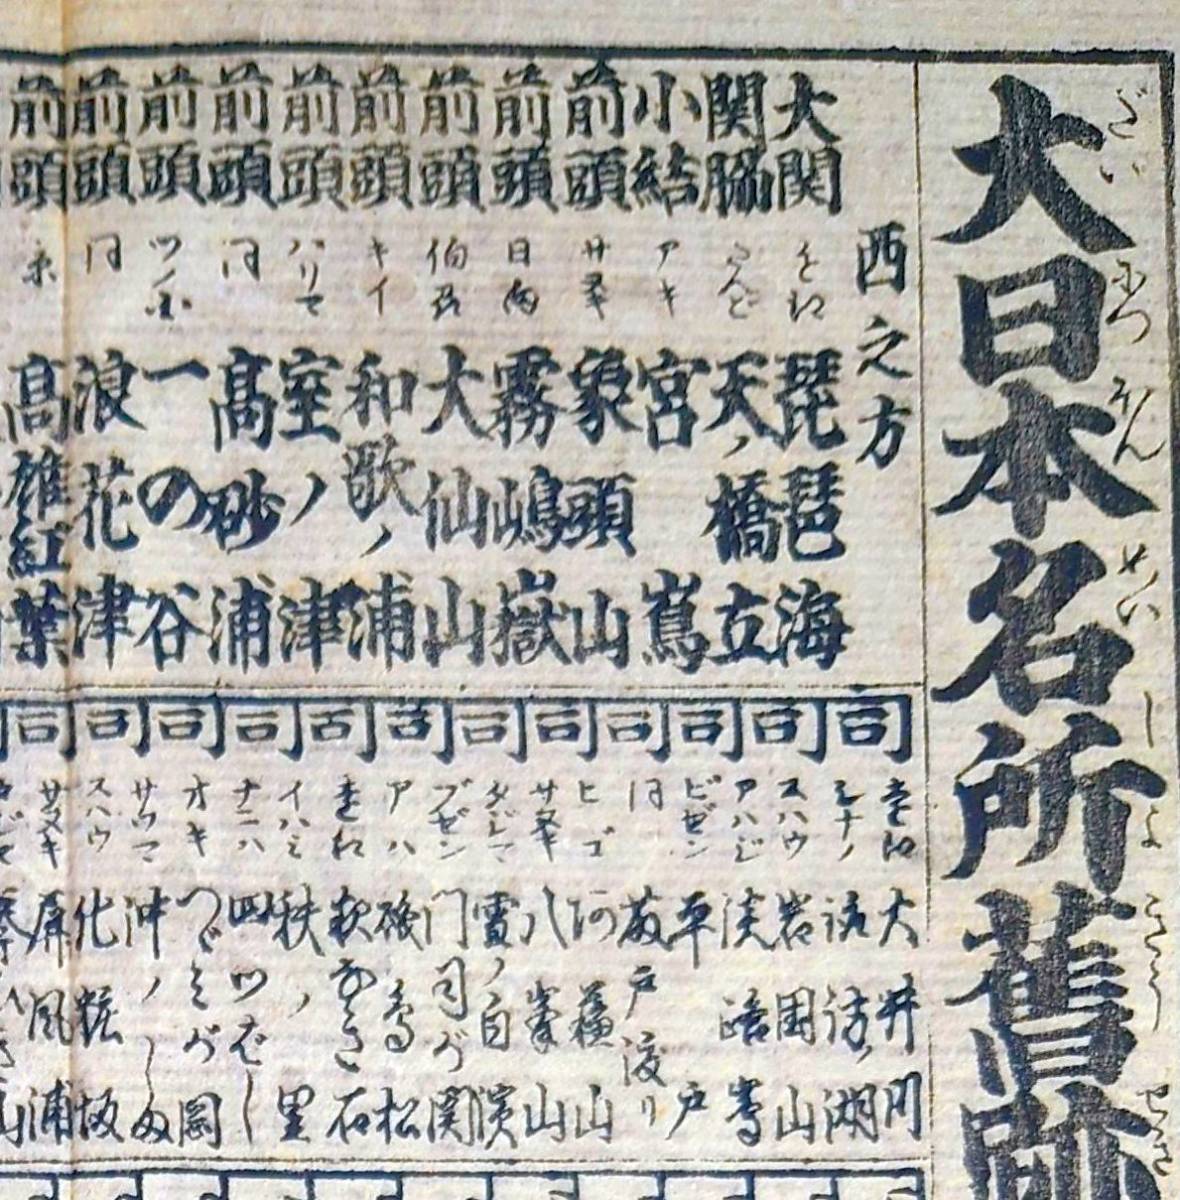 大日本名所舊跡
だい にっぽん めいしよ きう せき
西之方
大関 あふみ 琵琶海
関脇 たんご 天ノ橋立
小結 アキ 宮嶌
前頭 サヌキ 象頭山
前頭 日向 霧嶋嶽
前頭 伯耆 大仙山
前頭 キイ 和歌ノ浦
前頭 ハリマ 室ノ津
前頭 同 高砂浦
前頭 ツノ国 一の谷
前頭 同 浪花津
前頭 高雄紅葉
同 大井川
同 シナノ 諏訪ノ湖
同 スハウ 岩国山
同 アハジ 淡路嶌
同 ビゼン 平戸
同 同 戸渡り
同 ヒゴ 阿蘓山
同 サヌキ 八峯山
同 タジマ 雪ノ白濱
同 ブゼン 门司が関
同 アハ 磯鳥松
同 石
同 イハミ 秩ノ里
同 ナニハ 四ツばし
同 オキ つゞみが岡
同 サツマ 沖ノしま
同 スハウ 化粧坂
同 サヌキ 屏風浦